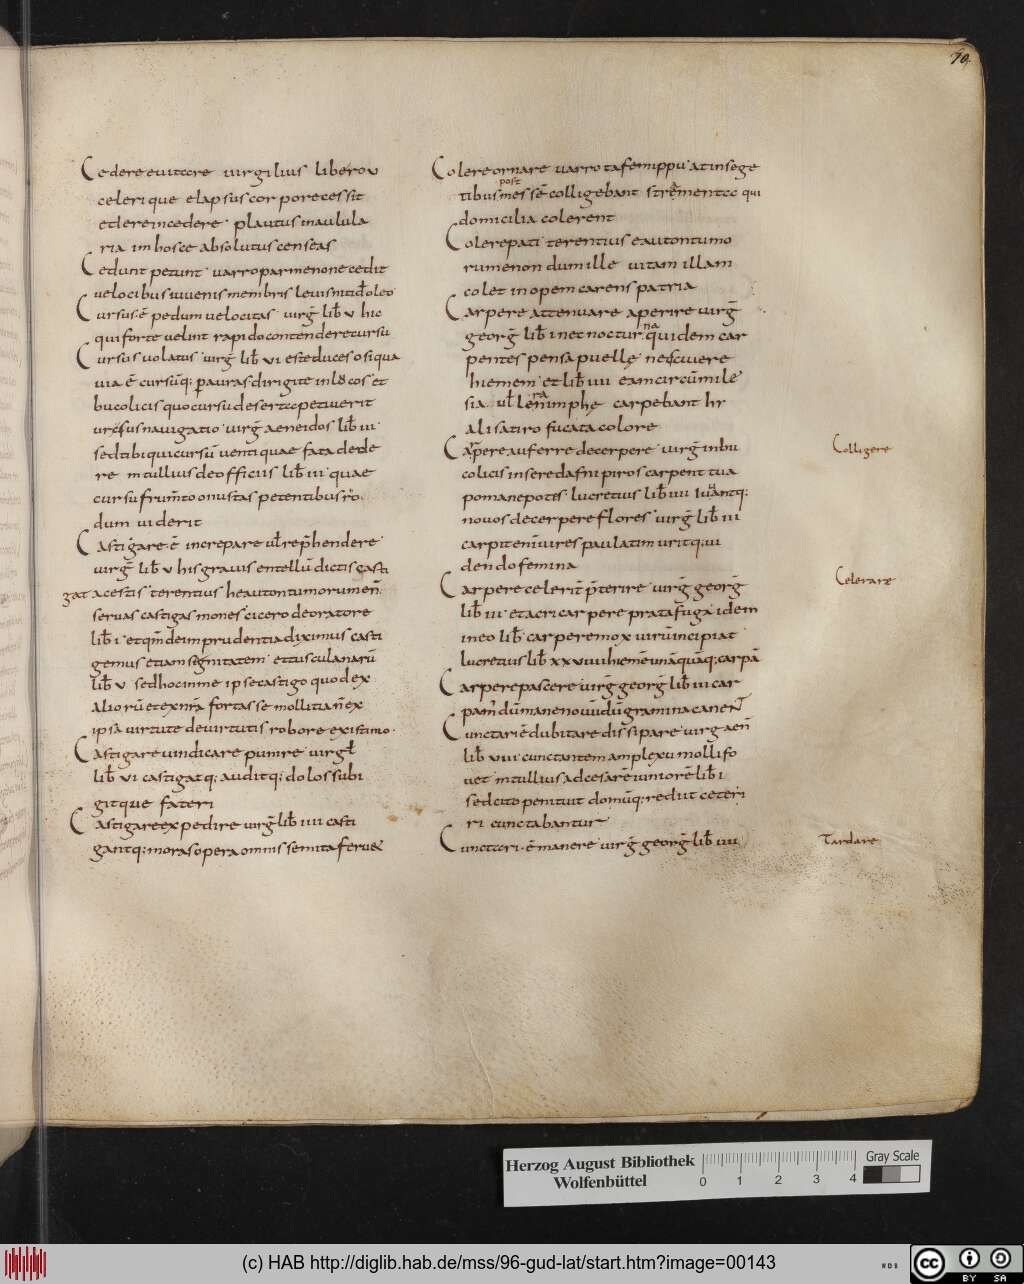 70.
Cedere euitare uirgilius libero v
celerique elapsus corpore cessit
cedere incedere plautus inaulula
ria im hosce absolutus censeas
Cedunt petunt uarro parmenone cedit
uelocibus iuuenis membris leuis nitid oleo
Cursus ē pedum uelocitas uirḡ lib̄ v hic
qui forte uelint rapido contendere cursu
Cursus uolatus uirḡ lib̄ vi este duces o siqua
uia ē cursūq; p auras dirigite in cos et
bucolicis quo cursu deserta petiuerit
cursus nauigatio uirḡ aeneidos lib̄ iii
sed tibi qui cursū uenti quae fata dede
re m tullius de officiis lib̄ iii quae
cursu frum̄to onustas petentibus ro
dum uiderit
Castigare ē increpare ul̄ rep̄hendere
uirḡ lib̄ v his grauis entellū dictis casti
gat acestis terentius heautontumorumen̄
seruas castigas mones cicero de oratore
lib̄ i et qm̄ de imprudentia diximus casti
gemus etiam segnitatem et tusculanarū
lib̄ v sed hoc in me ipse castigo quod ex
aliorū et ex nr̄a fortasse mollitia n̄ ex
ipsā uirtute de uirtutis robore existimo
Castigare uindicare punire uirgł
lib̄ vi castigatq; auditq; dolos subi
gitque fateri
Castigare expedire uirḡ lib̄ iiii casti
gantq; moras opera omnis semita feruet
Colere ornare uarro tafemippu at in sege
tibus post messē colligebant stramenta qui
domicilia colerent
Colere pati terentius eautontumo
rumenon dum ille uitam illam
colet inopem carens patria
Carpere attenuare aperire uirḡ
georḡ lib̄ i nec nocturna quidem car
pentes pensa puellę nesciuere
hiemem et lib̄ iiii eam circū mile
sia ul̄lera nimphę carpebant hy
ali satiro fucata colore
Carpere auferre decerpere uirḡ in bu
colicis insere dafni piros carpent tua
poma nepotes lucretius lib̄ iiii iuuantq;
nouos decerpere flores uirḡ lib̄ iii
carpit enī uires paulatim uritq; ui
dendo femina
Carpere celerit p̄terire uirḡ georḡ
lib̄ iii et acri carpere prata fuga idem
in eo lib̄ carpere mox uirū incipiat
lucretius lib̄ xxviiii hiemē unāquāq; carpā
Carpere pascere uirḡ georḡ lib̄ iii car
pam dū mane nouū dū gramina canent
Cunctari ē dubitare dissipare uirg aen̄
lib̄ viii cunctantem amplexu molli fo
uet m tullius ad cesarē iuniorē lib̄ i
sed cito penituit domūq; rediit ceteri
ri cunctabantur
Cunctari ē manere uirḡ georḡ lib̄ iiii
Colligere
Celerare
Tardare
Herzog August Bibliothek
Wolfenbüttel
0 1 2 3 4
Gray Scale
(c) HAB http://diglib.hab.de/mss/96-gud-lat/start.htm?image=00143
WDB
cc BY SA